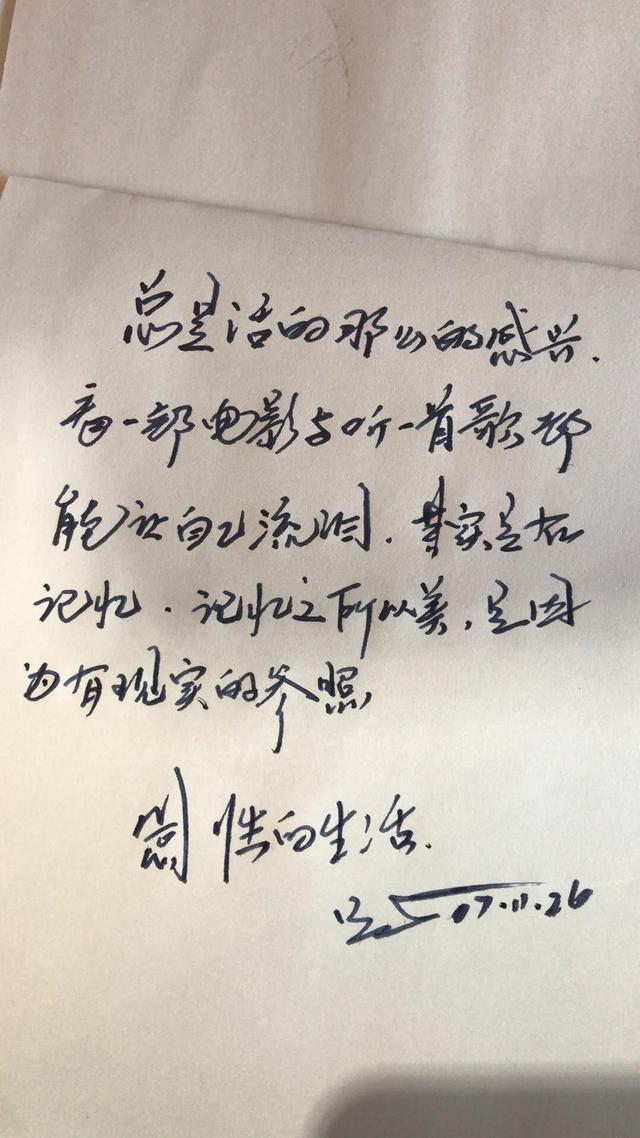 总是活的那么的感兴.
看一部电影与听一首歌都
能让自己流泪. 其实是在
记忆. 记忆之所以美, 是因
为有现实的参照,
性的生活.
07.11.26